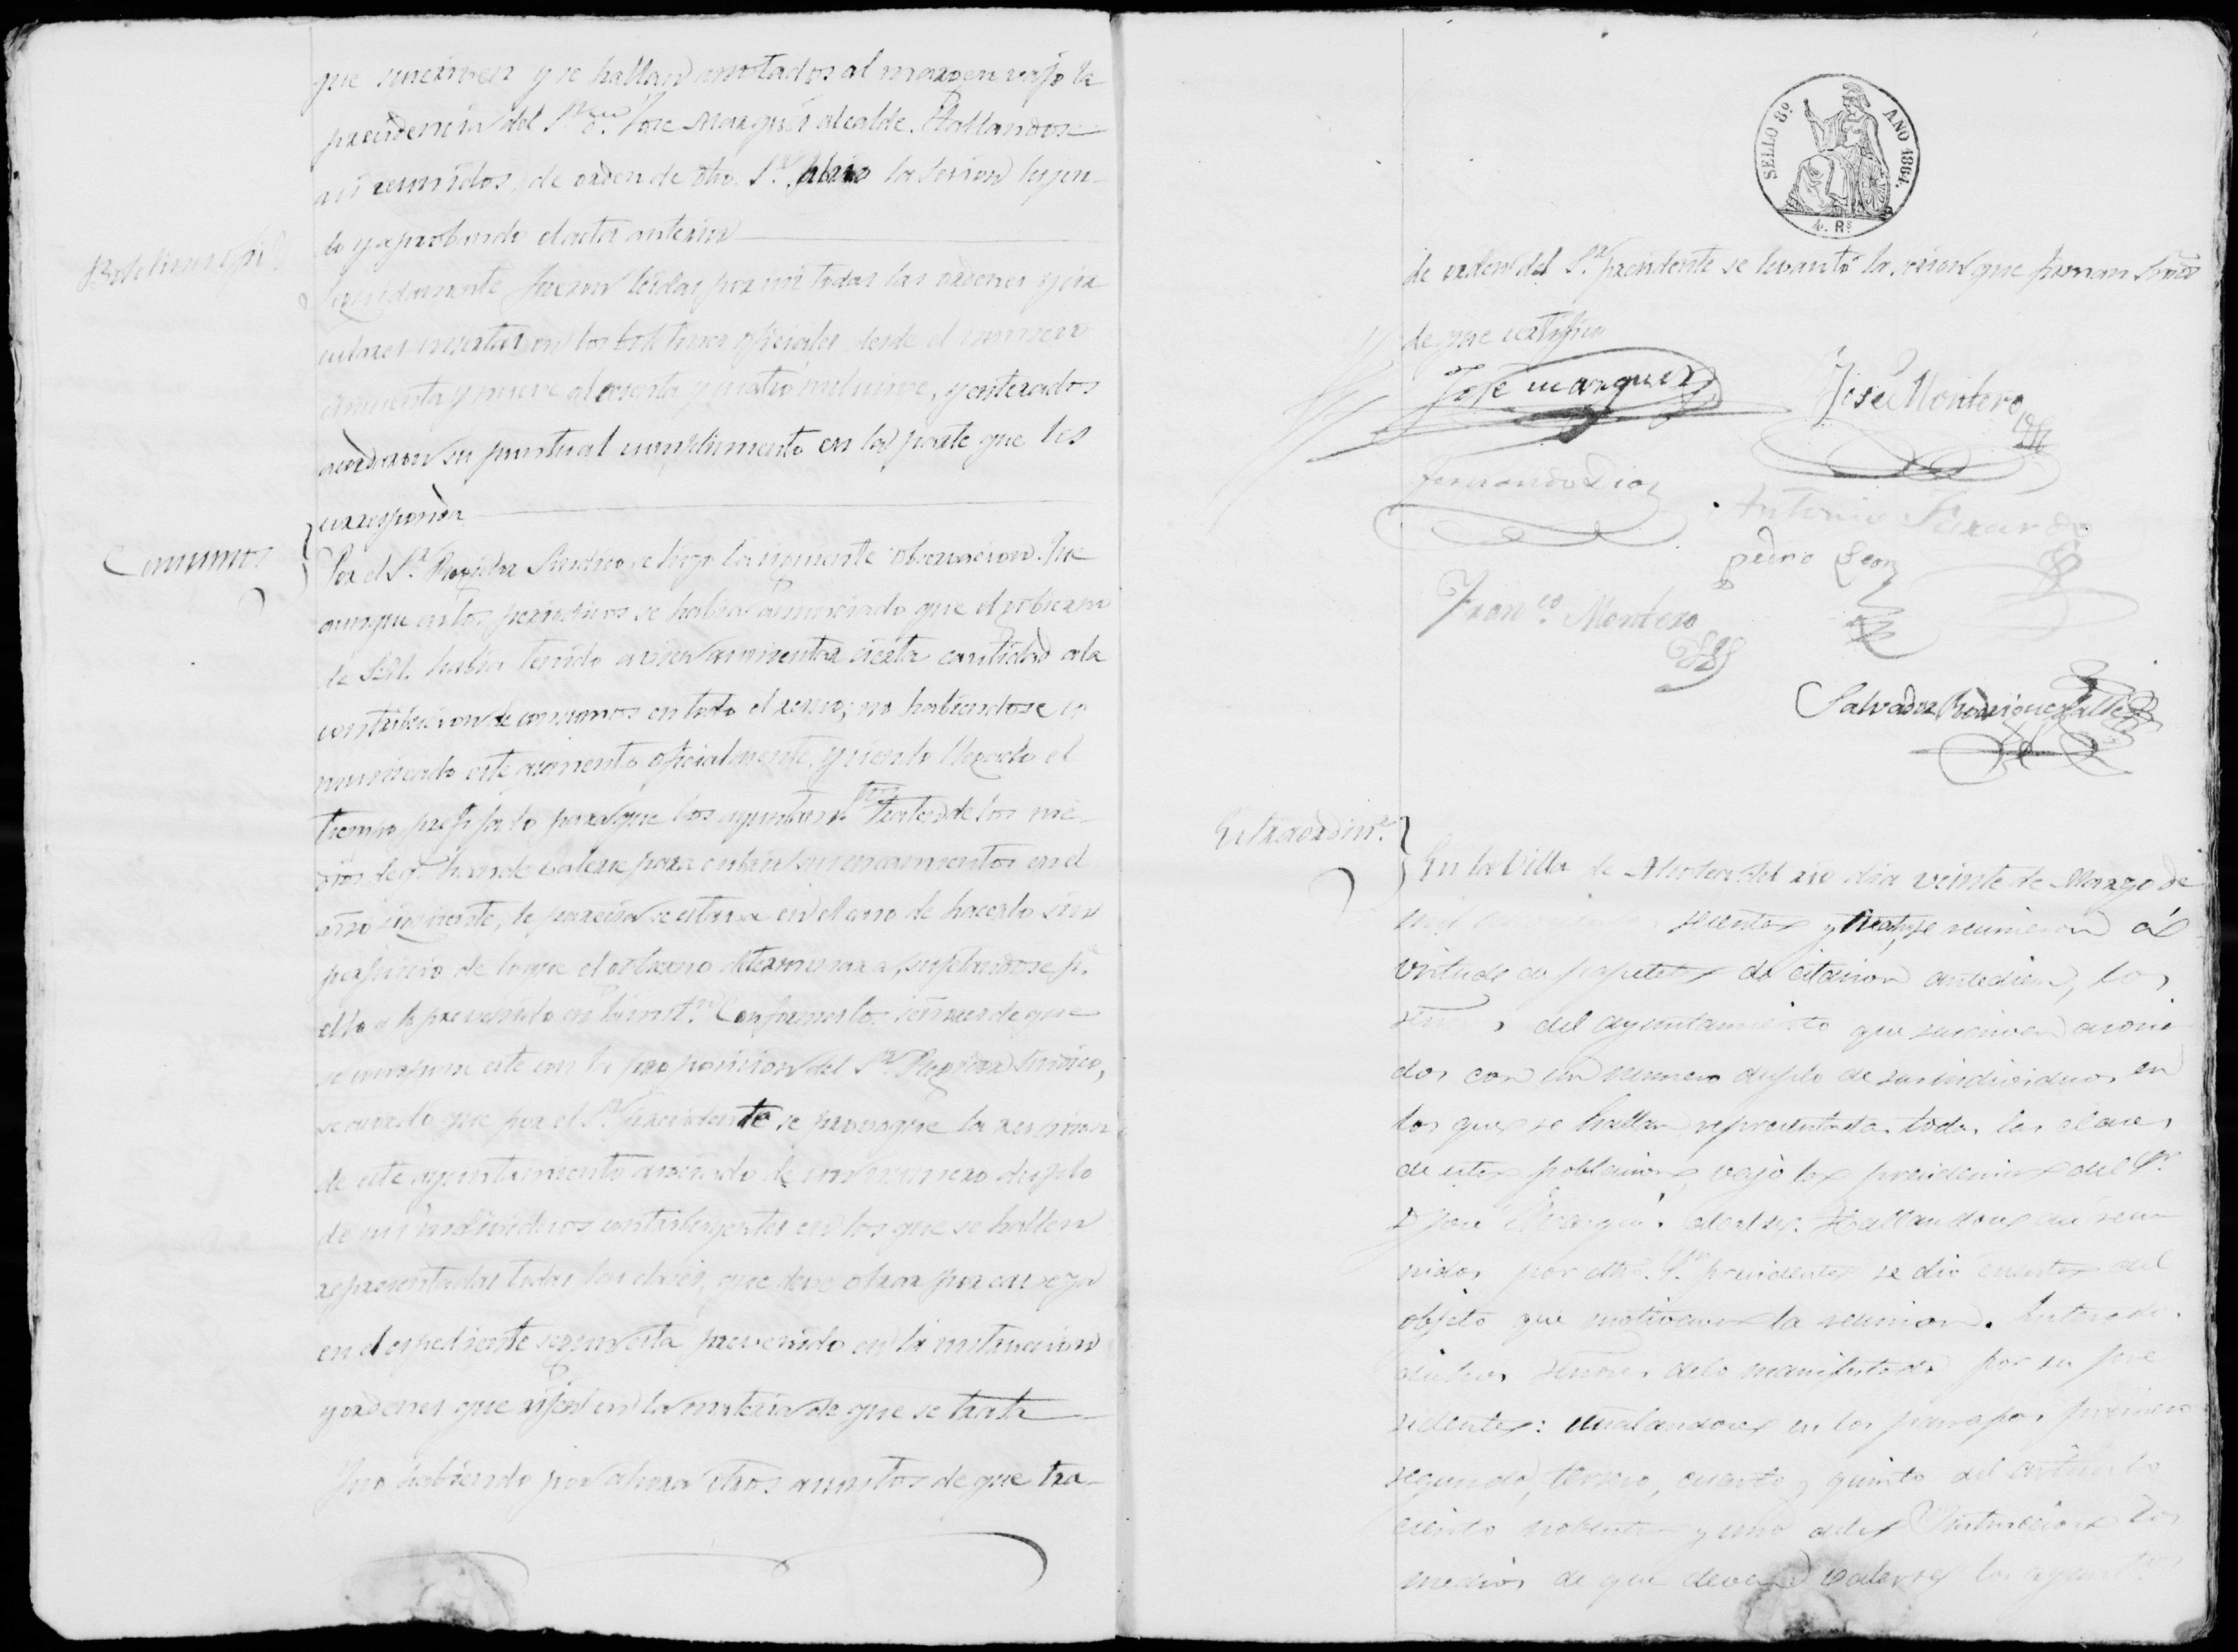 que suscriven y se hallan anotados al margen vajo la
presidencia del Sr. Dn. Jose Marques alcalde. Hallandose
asi reunidos, de orden de dho. Sr. se abrio la sesion leyen-
do y aprobando el acta anterior
Boletines ofis.
Seguidamente fueron leidas por mi todas las ordenes y cir
culares insertas en los boletines oficiales desde el numero
cincuenta y nueve al sesenta y cuatro inclusive, y enterados
acordaron su puntual cumplimiento en la parte que les
corresponda
Consumos
Por el Sr. Regidor Sindico se hizo la siguiente observacion. Que
aunque en los periodicos se habia anunciado que el gobierno
de S.M. habia tenido a bien aumentar cierta cantidad a la
contribucion de consumos en todo el reino; no habiendose co
municado este aumento oficialmente, y siendo llegado el
tiempo prefijado para que los ayuntamtos. traten de los me-
dios de q. han de valerse para cubrir sus encavezamientos en el
año siguiente, le parecia se estava en el caso de hacerlo sin
perjuicio de lo que el gobierno determinara, sujetandose pa.
ello a lo prevenido en la inst.n Conformes los señores de que
se compone este con la proposicion del Sr. Regidor Sindico,
se acordo que por el Sr. presidente se provoque la reunion
de este ayuntamiento asociado de un numero duplo
de sus individuos contribuyentes en los que se hallen
representadas todas las clases, que deve obrar por caveza
en el espediente segun esta prevenido en la instruccion
y ordenes que rijen en la materia de que se trata
Y no habiendo por ahora otros asuntos de que tra-
SELLO 8º AÑO 1864.
4. Rs
de orden del Sr. presidente se levantó la sesion que firman Sres
de que certifico
Jose Marquez
José Montero
Fernando Diaz
Antonio Faxardo
Pedro Leon
Franco. Montero
Salvador Rodriguez Valle
Extraordine.
En la Villa de del rio dia veinte de Marzo de
mil sesenta y cuatro, se reunieron en
virtud de papeletas de citacion antediem, los
señores del ayuntamiento que suscriven asocia
dos con un numero duplo de sus individuos en
los que se hallan representadas todas las clases
de esta poblacion, vajo la presidencia del Sr.
D. Jose Marques. Alcalde. Hallandose asi reu
nidos por dho. Sr. presidente se dio cuenta del
objeto que motivava la reunion. Enterados
dichos señores de lo manifestado por su pre
sidente: señalandose en los parrafos primero
segundo, tercero, cuarto y quinto del articulo
ciento noventa y uno de la Instruccion los
medios de que deven valerse los ayuntos.